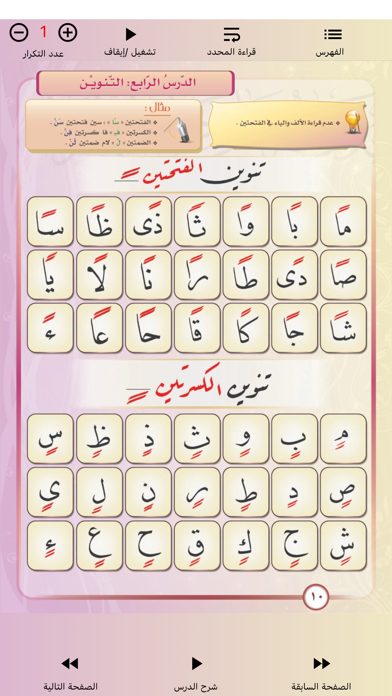 1
عدد التكرار
تشغيل /إيقاف
قراءة المحدد
الفهرس
الدّرسُ الرّابع: التّنويـْن
* عدم قراءة الألف والياء في الفتحتين .
مثال :
* الفتحتين « سًا » : سين فتحتين سَنْ .
* الكسرتين « فٍ » فا كسرتين فِنْ .
* الضمتين « لٌ » لام ضمتين لُنْ .
تنوين الفتحتين ـًـ
مًا بًا وًا ثًا ذًى ظًا سًا
صًا دًى طًا رًا نًا لًا يًا
شًا جًا كًا قًا حًا عًا ءً
تنوين الكسرتين ـٍـ
مٍ بٍ وٍ ثٍ ذٍ ظٍ سٍ
صٍ دٍ طٍ رٍ نٍ لٍ يٍ
شٍ جٍ كٍ قٍ حٍ عٍ ءٍ
١٠
الصفحة السابقة
شرح الدرس
الصفحة التالية